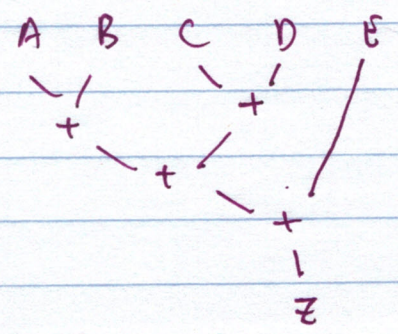 A B C D E
+
+
+
+
Z